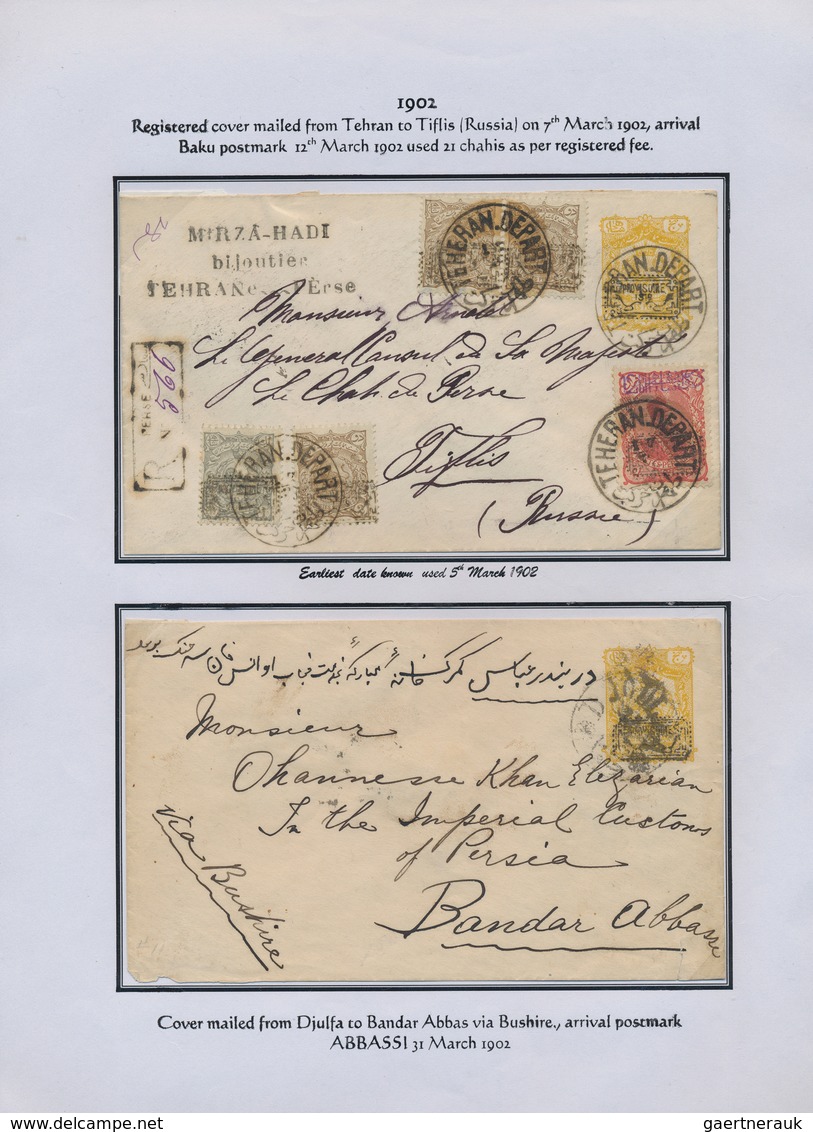 1902
Registered cover mailed from Tehran to Tiflis (Russia) on 7th March 1902, arrival
Baku postmark 12th March 1902 used 21 chahis as per registered fee.
MIRZA-HADI
bijoutier
TEHRAN
TEHERAN.DEPART
TEHERAN.DEPART
PROVISOIRE
1319
Monsieur Arnold
Le General Consul de Sa Majesté
Le Chah de Perse
Tiflis
(Russie)
R
PERSE
N
995
TEHERAN.DEPART
TEHERAN.DEPART
Earliest date known used 5th March 1902
در بندر عباس گمرک خانه مبارکه
Monsieur
Ohannesse Khan Elezarian
In the Imperial Customs
of Persia
Bandar Abbasse
via Bushire
Cover mailed from Djulfa to Bandar Abbas via Bushire., arrival postmark
ABBASSI 31 March 1902
www.delcampe.net
gaertnerauk